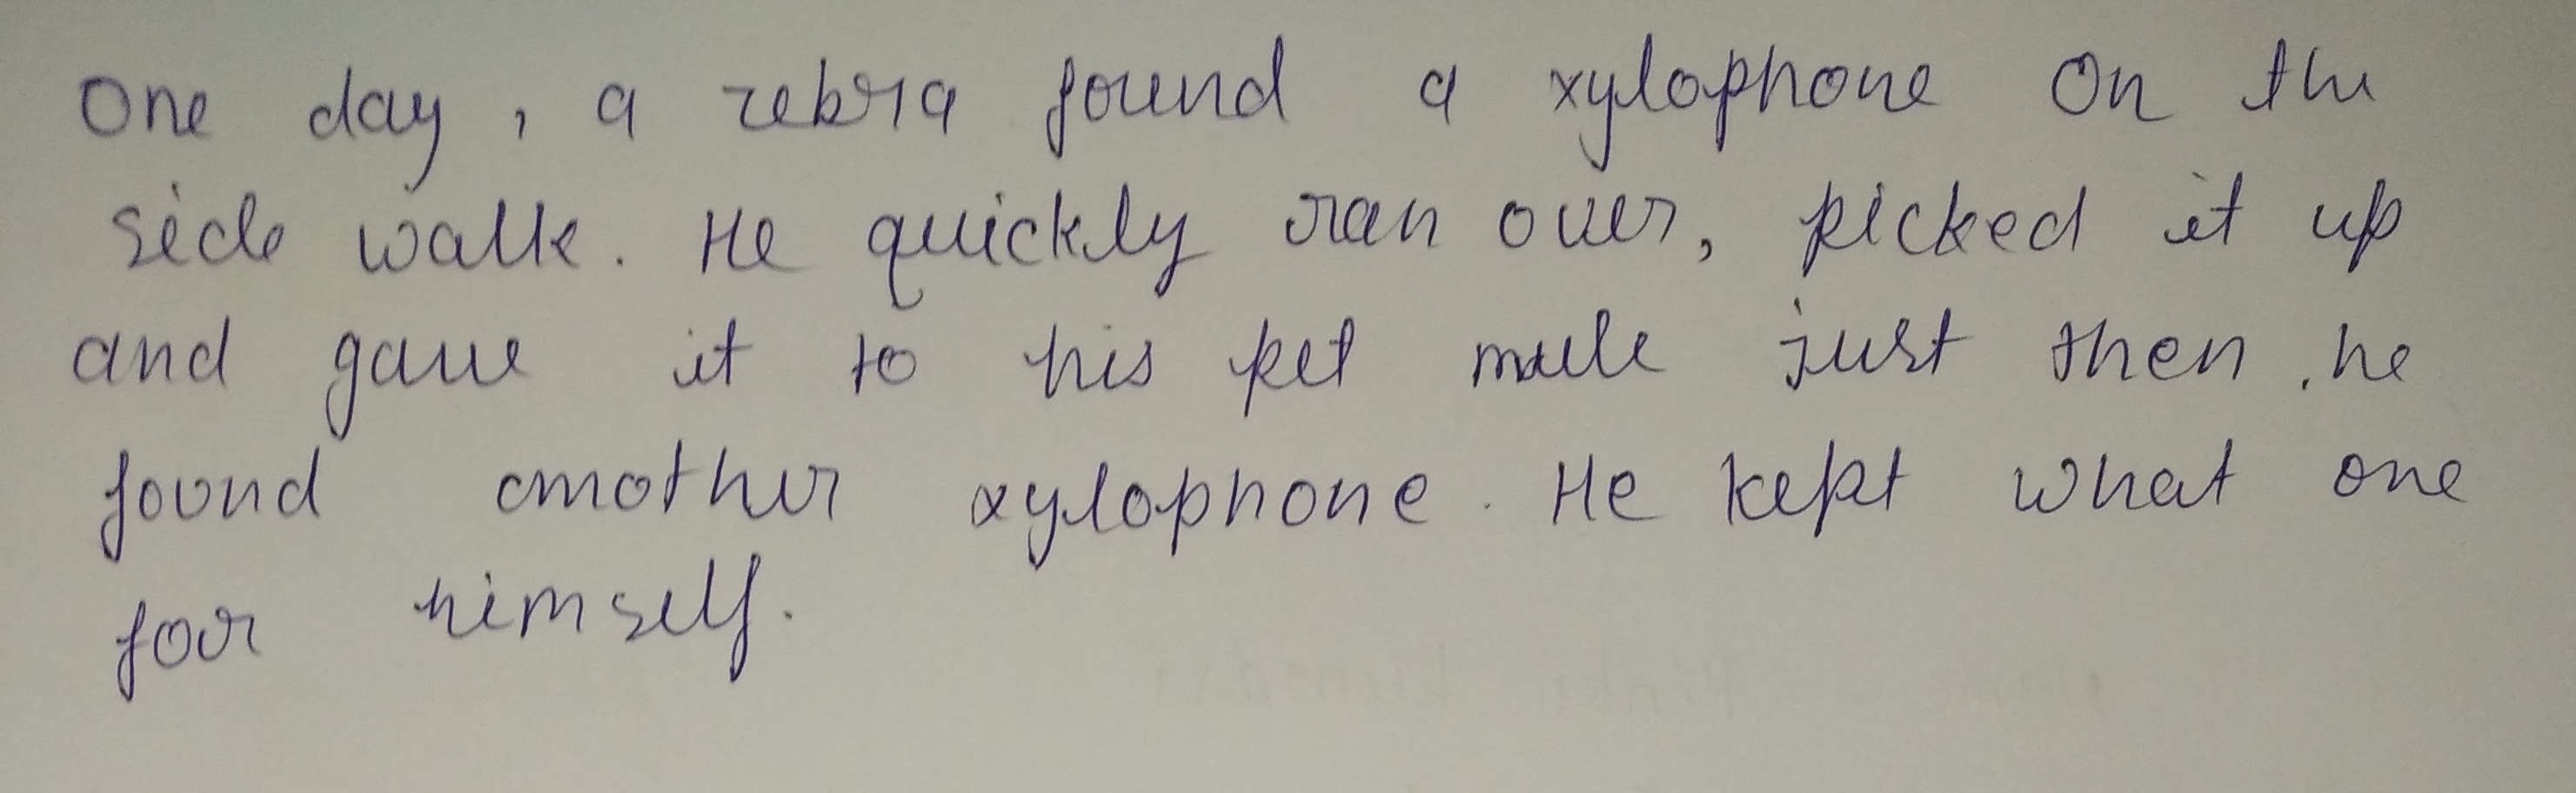 One day, a zebra found a xylophone on the
side walk. He quickly ran over, picked it up
and gave it to his pet mule just then, he
found another xylophone. He kept what one
for himself.